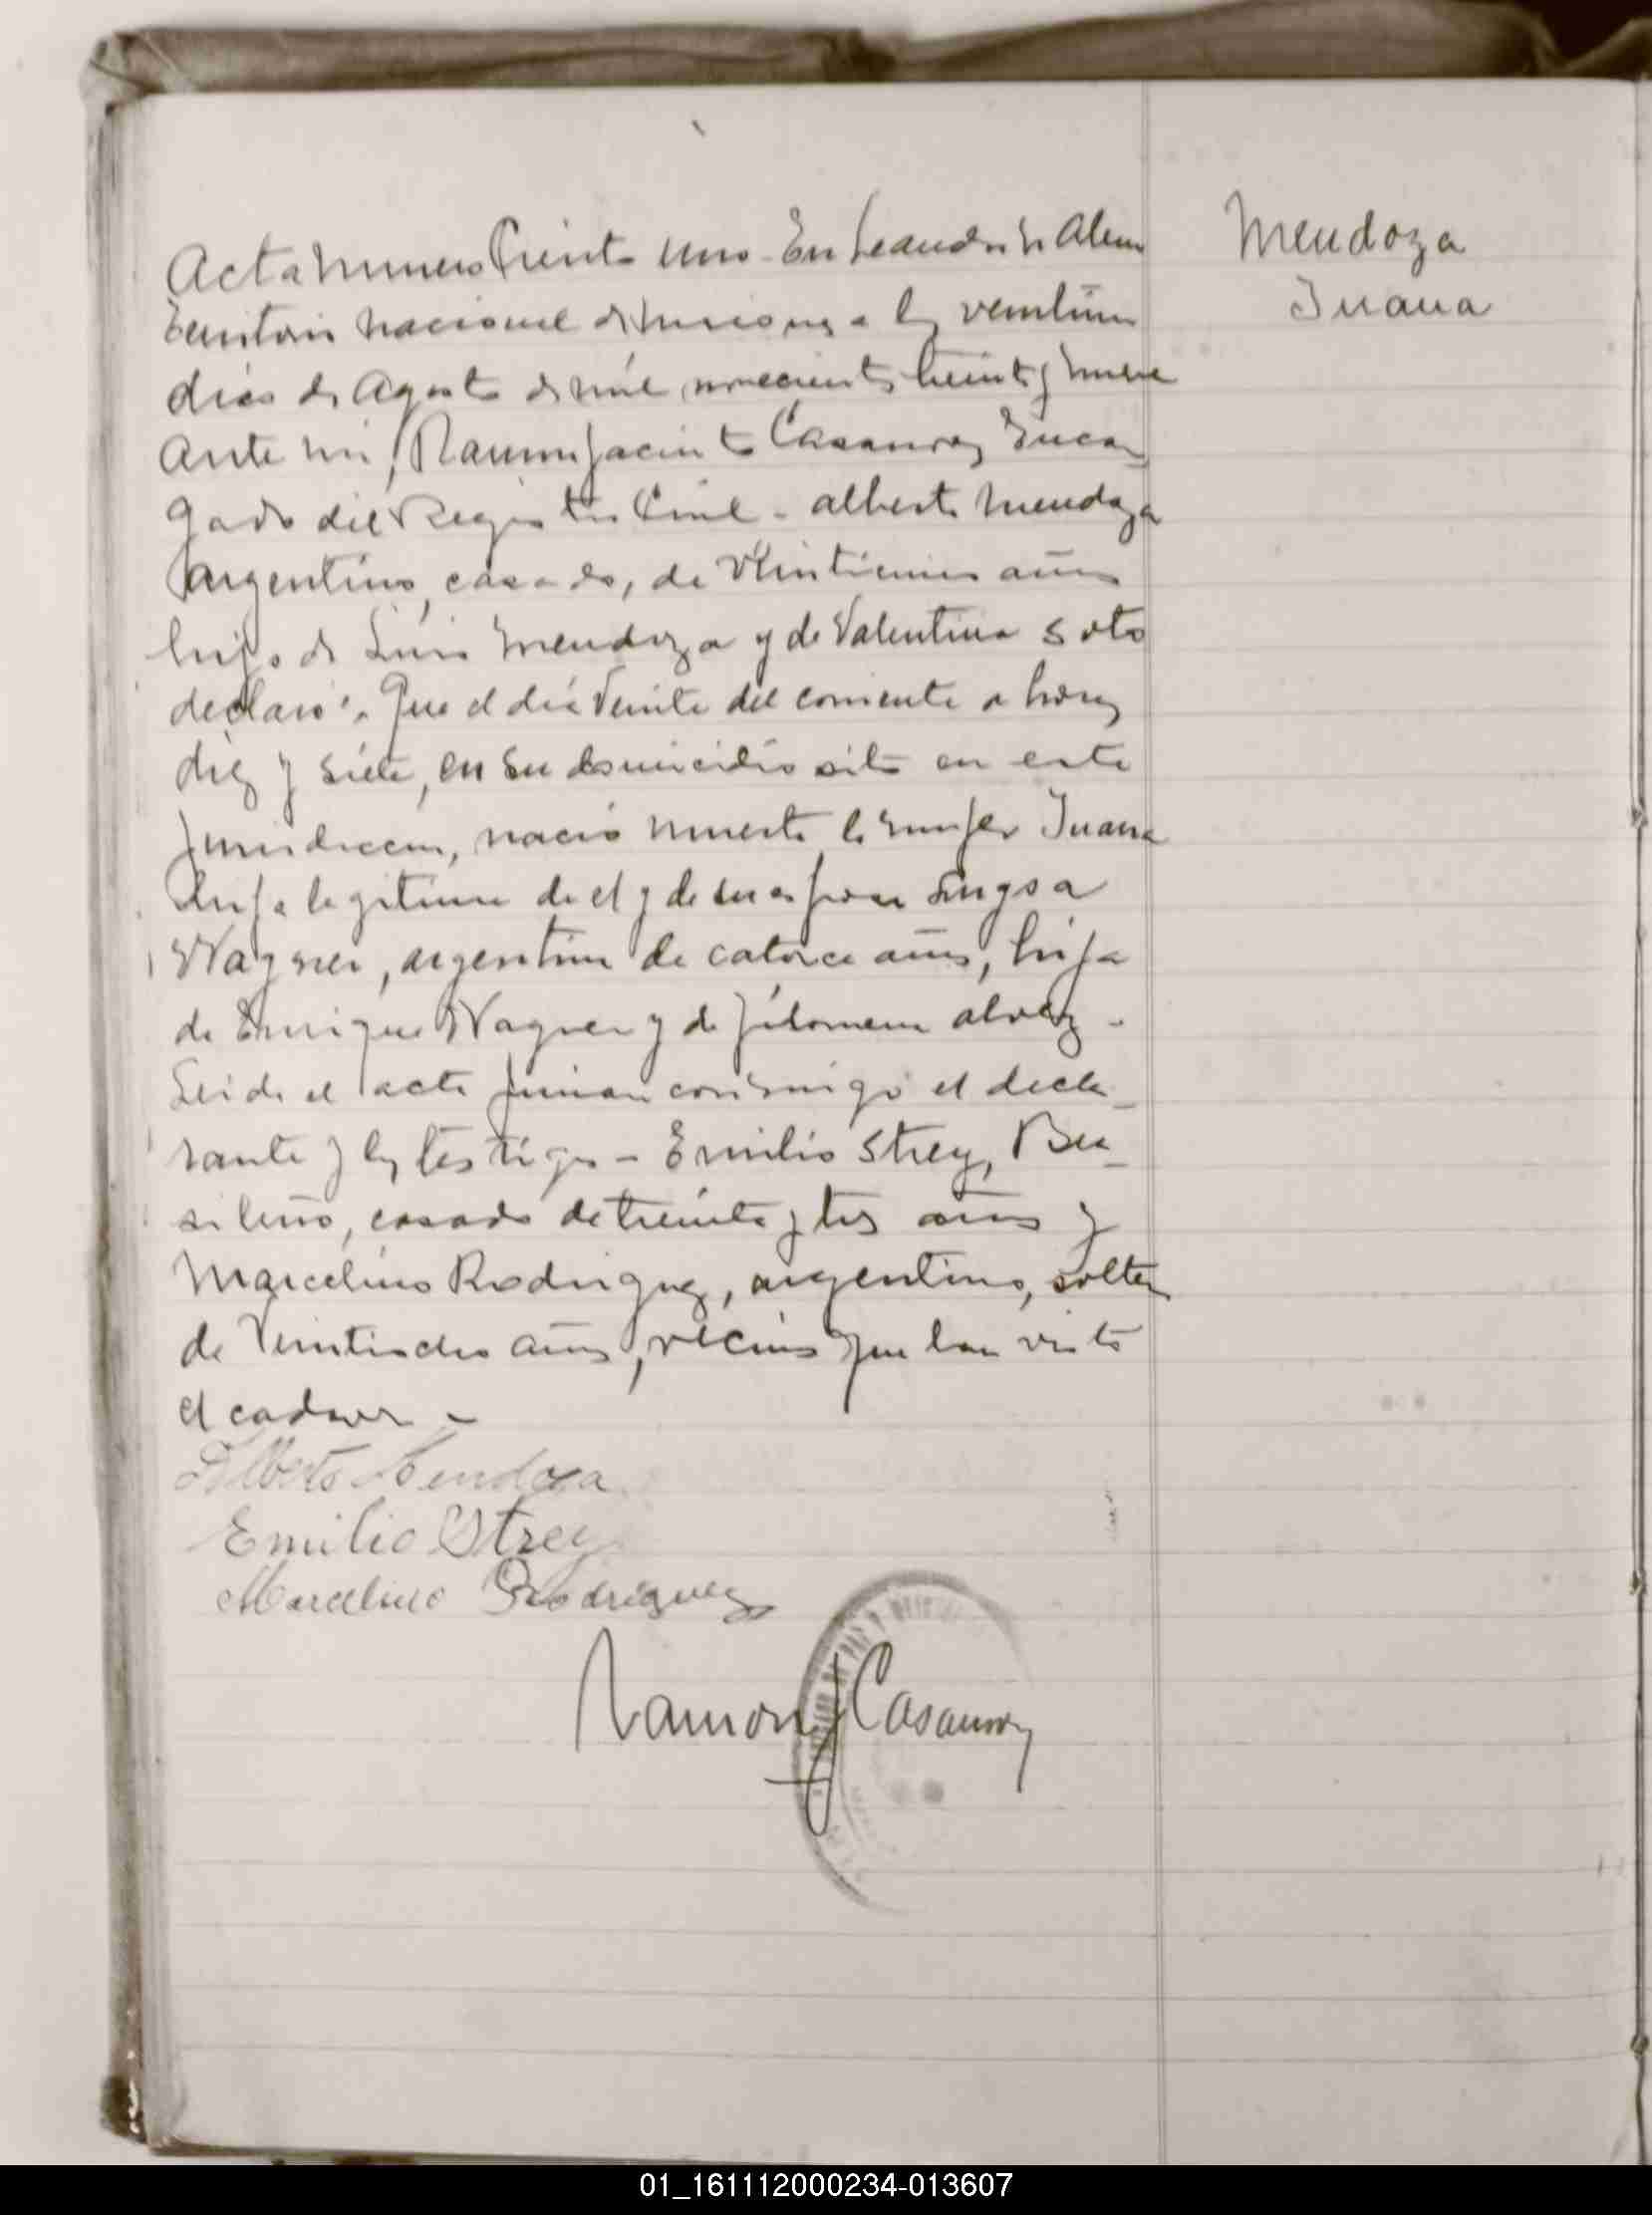 Acta Numero Ciento uno - En Leandro N Alem
Mendoza
Juana
Territorio Nacional de Misiones a los veintiun
dias de Agosto de mil novecientos treinta y nueve
Ante mi, Ramon Jacinto Casanova, Encar
gado del Registro Civil - Alberto Mendoza
argentino, casado, de años
hijo de Luis Mendoza y de Valentina Soto
declaró: Que el dia veinte del corriente a horas
diez y siete, en su domicilio sito en esta
Jurisdiccion, nació muerta la mujer Juana
hija legitima de el y de su esposa
Wagner, argentina de catorce años, hija
de Enrique Wagner y de Filomena Alvez -
Leida el acta firman conmigo el decla_
rante y los testigos - Emilio Strey, Bra_
sileño, casado de treinta y tres años y
Marcelino Rodriguez, argentino, soltero
de Veintiocho años, vecinos que han visto
el cadaver -
Alberto Mendoza
Emilio Strey
Marcelino Rodriguez
Ramon J Casanova
01_161112000234-013607